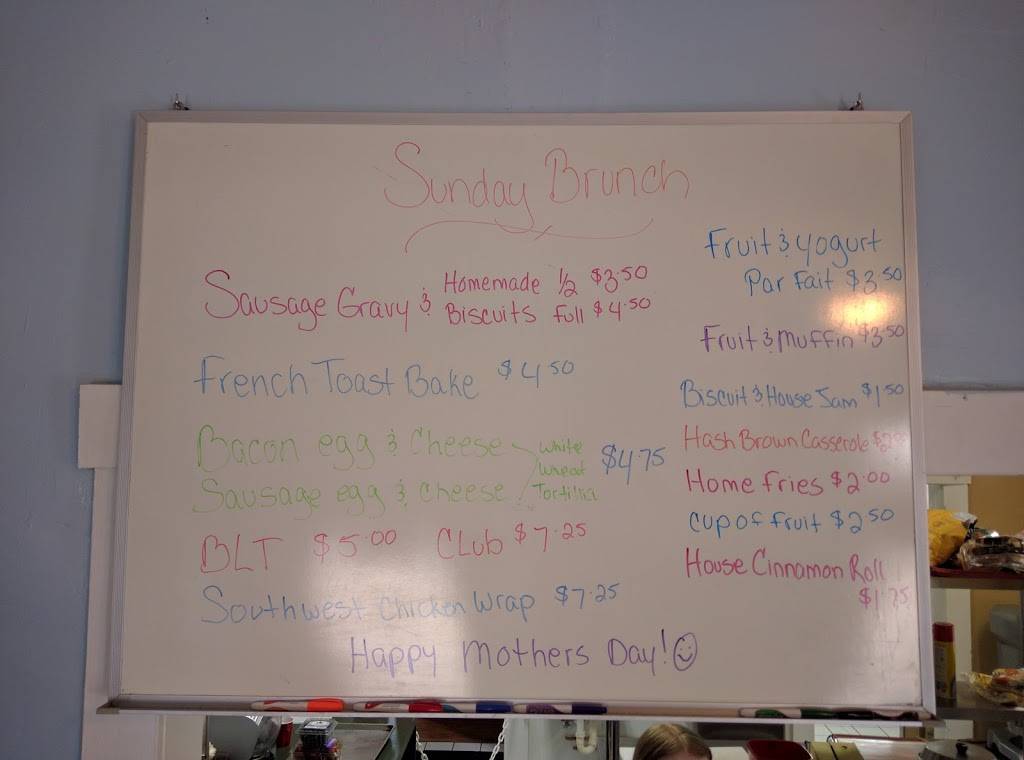 Sunday Brunch
Sausage Gravy & Homemade 1/2 $3.50
Biscuits full $4.50
French Toast Bake $4.50
Bacon egg & Cheese
Sausage egg & Cheese
White
Wheat
Tortilla
$4.75
BLT $5.00 Club $7.25
Southwest Chicken Wrap $7.25
Happy Mothers Day!
Fruit & yogurt
Par Fait $3.50
Fruit & muffin $3.50
Biscuit & House Jam $1.50
Hash Brown Casserole
Home fries $2.00
cup of fruit $2.50
House Cinnamon Roll
$1.75